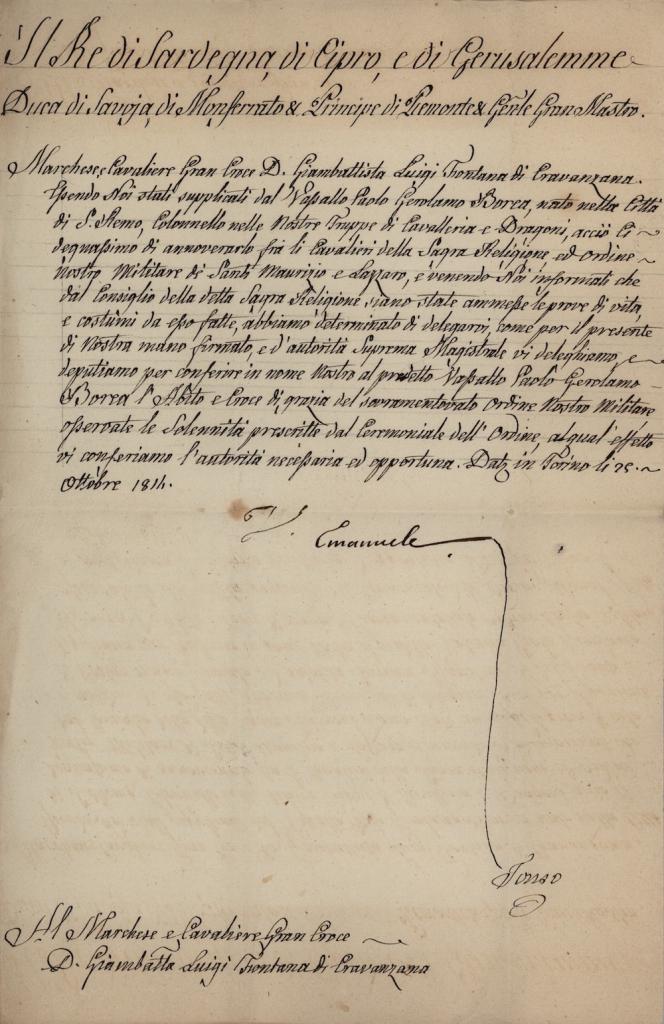 Il Re di Sardegna, di Cipro, e di Gerusalemme
Duca di Savoja, di Monferrato & Principe di Piemonte & Gen̄le Gran Mastro.
Marchese, e Cavaliere Gran Croce D. Giambattista Luigi Fontana di Cravanzana.
Essendo Noi stati supplicati dal Vassallo Paolo Gerolamo Borea, nato nella Città
di S. Remo, Colonnello nelle Nostre Truppe di Cavalleria e Dragoni, acciò Ci
degnassimo di annoverarlo frà li Cavalieri della Sagra Religione, ed Ordine
Nostro Militare di Santi Maurizio e Lazzaro, e venendo Noi informati che
dal Consiglio della detta Sagra Religione siano state ammesse le prove di vita,
e costumi da esso fatte, abbiamo determinato di delegarvi, come per il presente
di Nostra mano firmato, e d'autorità Suprema Magistrale vi deleghiamo, e
deputiamo per conferire in nome Nostro al predetto Vassallo Paolo Gerolamo
Borea l'Abito e Croce di grazia del sovramentovato Ordine Nostro Militare
osservate le Solennità prescritte dal Ceremoniale dell'Ordine, al qual effetto
vi conferiamo l'autorità necessaria ed opportuna. Dat. in Torino li
Ottobre 1814.
V. Emanuele
Tonso
Al Marchese e Cavaliere Gran Croce
D. Giambatta Luigi Fontana di Cravanzana